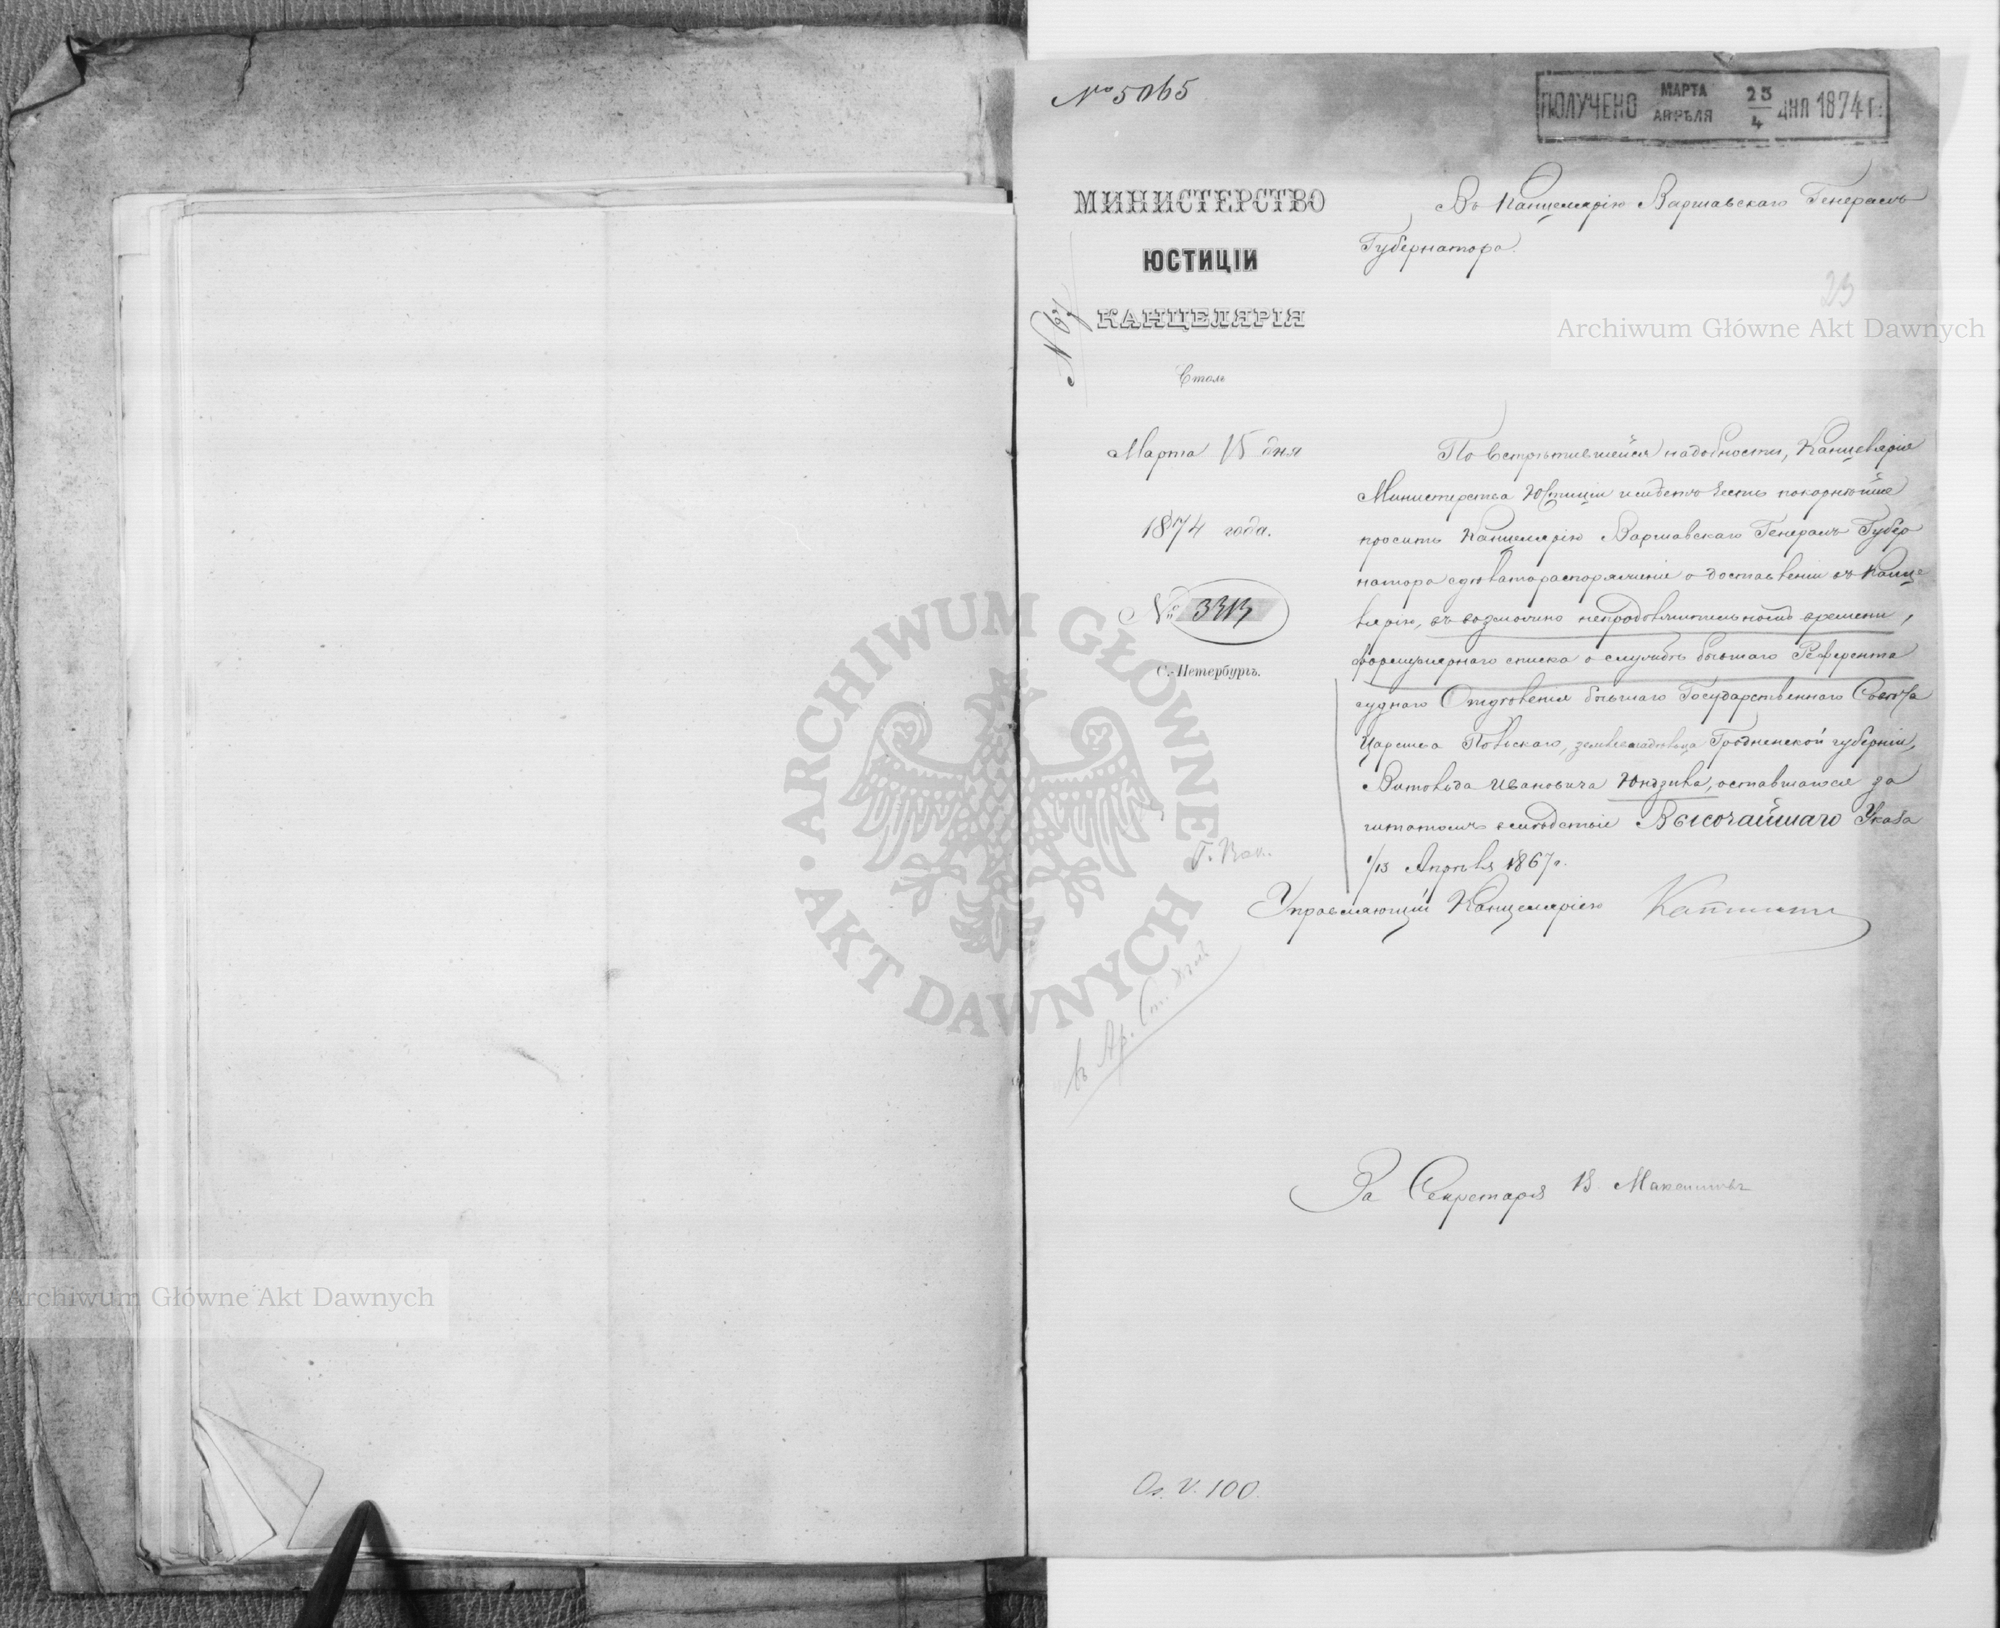 № 5065
ПОЛУЧЕНО МАРТА АПРѢЛЯ 23/4 ДНЯ 1874 Г.
МИНИСТЕРСТВО
ЮСТИЦІИ
КАНЦЕЛЯРІЯ
Столъ
Марта 15 дня
1874 года.
№ 3313
С.-Петербургъ.
Въ Канцелярію Варшавскаго Генералъ
Губернатора.
23
По встрѣтившейся надобности, Канцелярія
Министерства Юстиціи имѣетъ честь покорнѣйше
просить Канцелярію Варшавскаго Генералъ Губер
натора сдѣлать распоряженіе о доставленіи въ Канце
лярію, въ возможно непродолжительномъ времени,
формулярнаго списка о службѣ бывшаго Референта
суднаго Отдѣленія бывшаго Государственнаго Совѣта
Царства Польскаго, землевладѣльца Гродненской губерніи,
Витольда Ивановича Юндзила, оставшагося за
штатомъ вслѣдствіе Высочайшаго Указа
1/13 Апрѣля 1867 г.
Управляющій Канцеляріею
За Секретаря В.
въ Ар. Ст.
V. 100.
Archiwum Główne Akt Dawnych
Archiwum Główne Akt Dawnych
ARCHIWUM GŁÓWNE AKT DAWNYCH